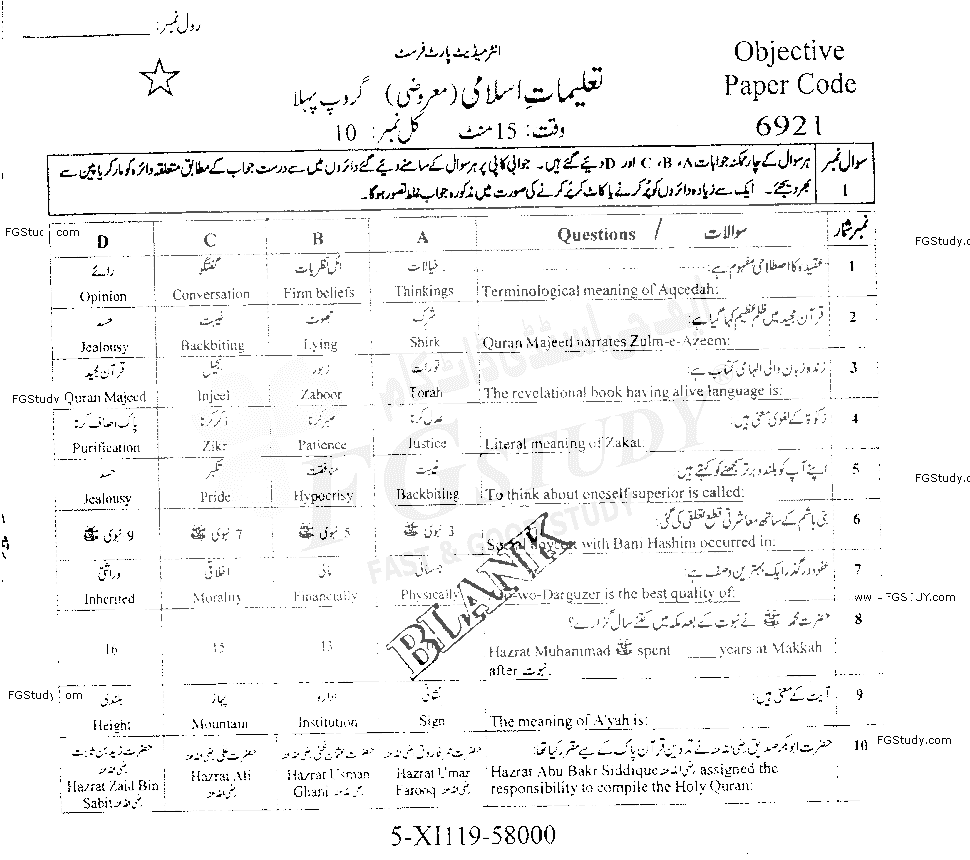 رول نمبر:
انٹرمیڈیٹ پارٹ فرسٹ
Objective
Paper Code
6921
تعلیماتِ اسلامی (معروضی) گروپ پہلا
وقت: 15 منٹ کل نمبر: 10
سوال نمبر 1
ہر سوال کے چار ممکنہ جوابات A، B، C اور D دیئے گئے ہیں۔ جوابی کاپی پر ہر سوال کے سامنے دیئے گئے دائروں میں سے درست جواب کے مطابق متعلقہ دائرہ کو مارکر یا پین سے
بھر دیجئے۔ ایک سے زیادہ دائروں کو پُر کرنے یا کاٹ کر پُر کرنے کی صورت میں مذکورہ جواب غلط تصور ہوگا۔
نمبر شمار سوالات / Questions A B C D
1 عقیدہ کا اصطلاحی مفہوم ہے: خیالات اٹل نظریات گفتگو رائے
Terminological meaning of Aqeedah: Thinkings Firm beliefs Conversation Opinion
2 قرآن مجید میں ظلم عظیم کہا گیا ہے: شرک جھوٹ غیبت حسد
Quran Majeed narrates Zulm-e-Azeem: Shirk Lying Backbiting Jealousy
3 زندہ زبان والی الہامی کتاب ہے: تورات زبور انجیل قرآن مجید
The revelational book having alive language is: Torah Zaboor Injeel Quran Majeed
4 زکوٰة کے لغوی معنی ہیں: عدل کرنا صبر کرنا ذکر کرنا پاک صاف کرنا
Literal meaning of Zakat. Justice Patience Zikr Purification
5 اپنے آپ کو بلند و برتر سمجھنے کو کہتے ہیں غیبت منافقت تکبر حسد
To think about oneself superior is called: Backbiting Hypocrisy Pride Jealousy
6 بنی ہاشم کے ساتھ معاشرتی قطع تعلقی کی گئی: 3 نبوی ﷺ 5 نبوی ﷺ 7 نبوی ﷺ 9 نبوی ﷺ
with Bani Hashim occurred in:
7 عفو و درگذر ایک بہترین وصف ہے: جسمانی مالی اخلاقی وراثتی
-wo-Darguzer is the best quality of: Physically Financially Morality Inherited
8 حضرت محمد ﷺ نے نبوت کے بعد مکہ میں کتنے سال گزارے؟ 13 15 16
Hazrat Muhammad ﷺ spent ____ years at Makkah
after نبوت.
9 آیت کے معنی ہیں: نشانی ادارہ پہاڑ بلندی
The meaning of A'yah is: Sign Institution Mountain Height
10 حضرت ابوبکر صدیق رضی اللہ عنہ نے تدوین قرآن پاک کے لیے مقرر کیا تھا: حضرت عمر فاروق رضی اللہ عنہ حضرت عثمان غنی رضی اللہ عنہ حضرت علی رضی اللہ عنہ حضرت زید بن ثابت رضی اللہ عنہ
Hazrat Abu Bakr Siddique رضی اللہ عنہ assigned the
responsibility to compile the Holy Quran:
Hazrat Umar Farooq رضی اللہ عنہ
Hazrat Usman Ghani رضی اللہ عنہ
Hazrat Ali رضی اللہ عنہ
Hazrat Zaid Bin Sabit رضی اللہ عنہ
BLANK
5-XI119-58000
ایف جی سٹڈی ڈاٹ کام
FGSTUDY
FAST & GOOD STUDY
FGStudy.com